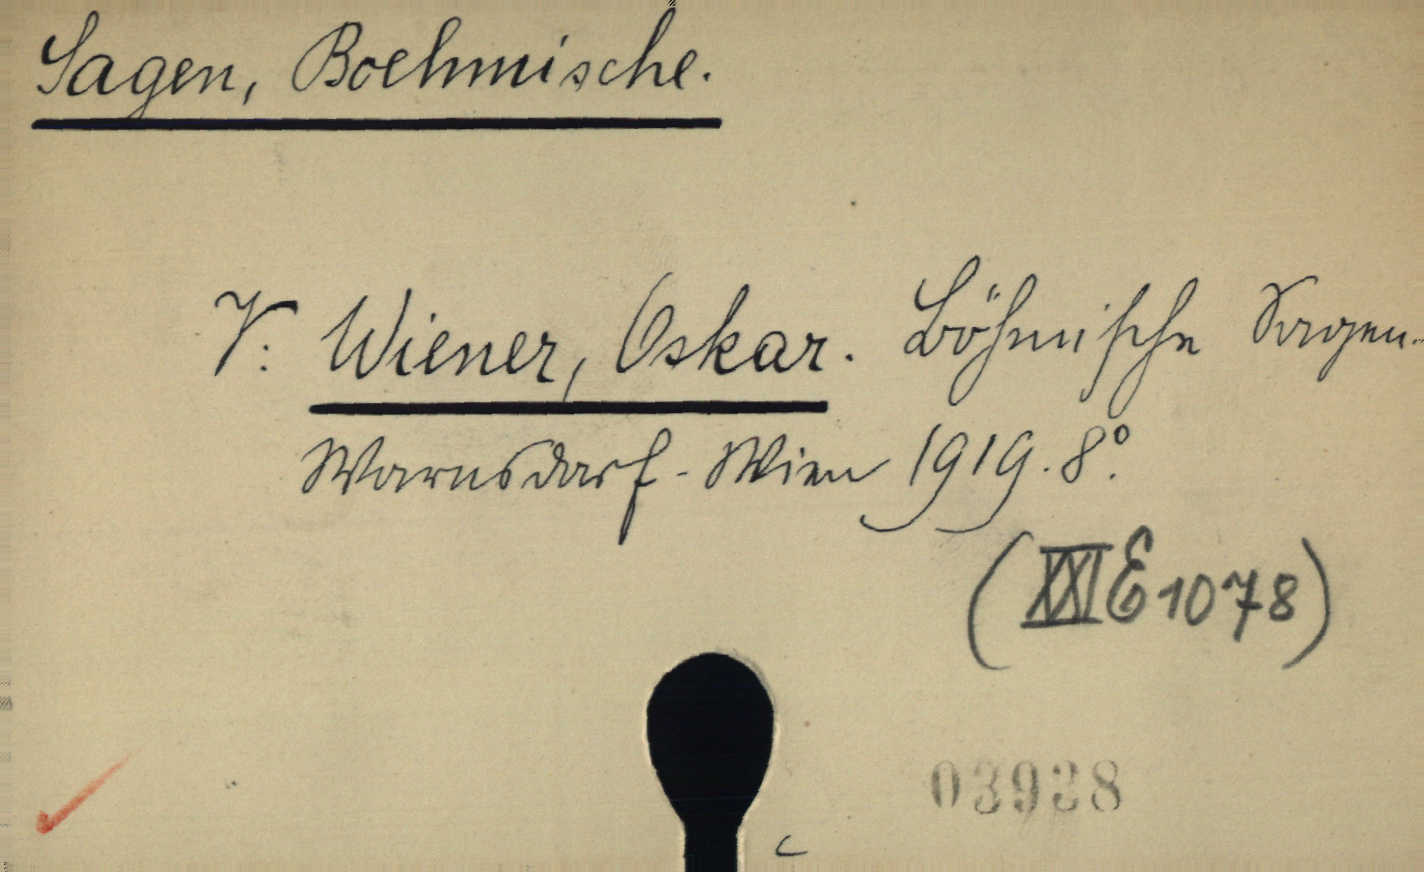 Sagen, Boehmische.
V: Wiener, Oskar. Böhmische Sagen.
Warnsdorf-Wien 1919. 8°.
(XXI E 1078)
03938